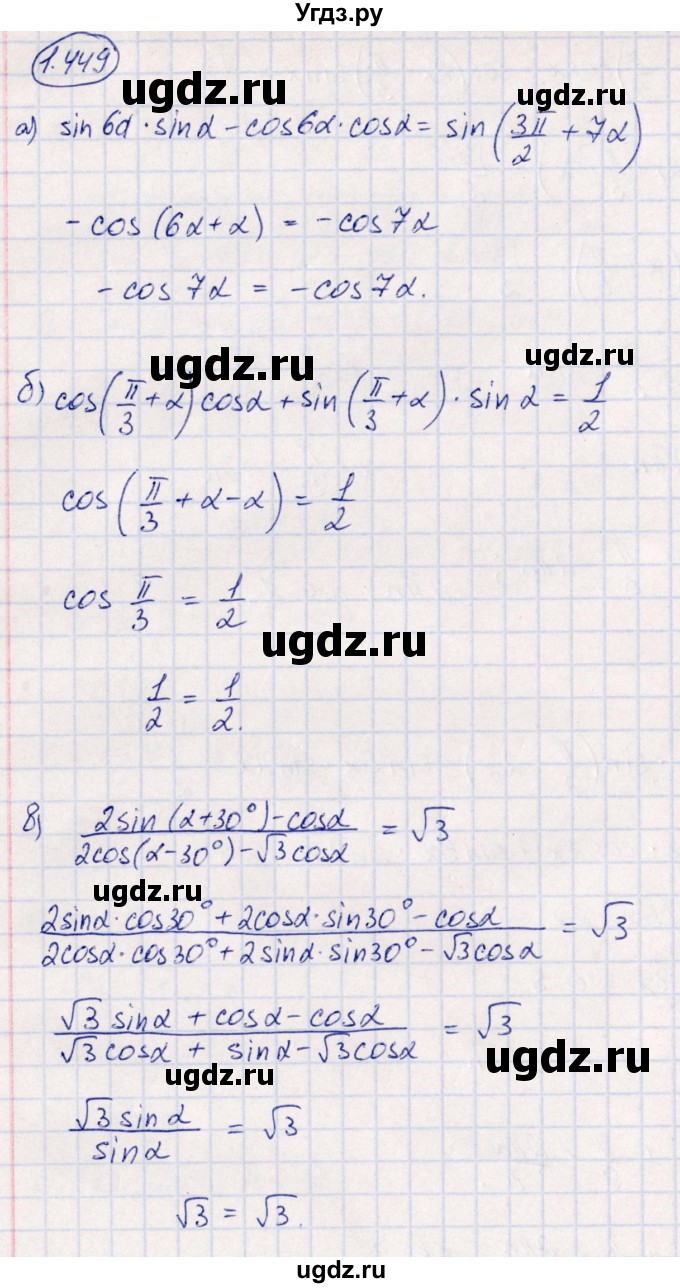 Угдз.ру
1.449
ugdz.ru
ugdz.ru
а) sin6α·sinα - cos6α·cosα = sin(3π/2 + 7α)
-cos(6α+α) = -cos7α
-cos7α = -cos7α.
ugdz.ru
ugdz.ru
б) cos(π/3+α)cosα + sin(π/3+α)·sinα = 1/2
cos(π/3+α-α) = 1/2
cos π/3 = 1/2
ugdz.ru
1/2 = 1/2.
в) (2sin(α+30°)-cosα)/(2cos(α-30°)-√3cosα) = √3
ugdz.ru
(2sinα·cos30°+2cosα·sin30°-cosα)/(2cosα·cos30°+2sinα·sin30°-√3cosα) = √3
(√3sinα+cosα-cosα)/(√3cosα+sinα-√3cosα) = √3
ugdz.ru
ugdz.ru
√3sinα/sinα = √3
√3 = √3.
ugdz.ru